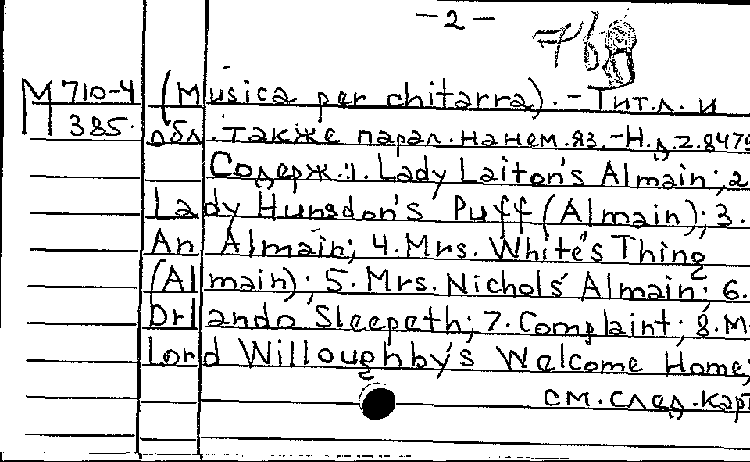 -2-
М 710-4 (Musica per chitarra).-Тит.л. и
385. обл. также парал. на нем. яз.-Н.д.2.8479
Содерж.:1. Lady Laiton's Almain; 2
Lady Hunsdon's Puff (Almain); 3.
An Almain; 4. Mrs. White's Thing
(Almain); 5. Mrs. Nichols' Almain; 6.
Orlando Sleepeth; 7. Complaint; 8. M
Lord Willoughby's Welcome Home;
см. след. карт